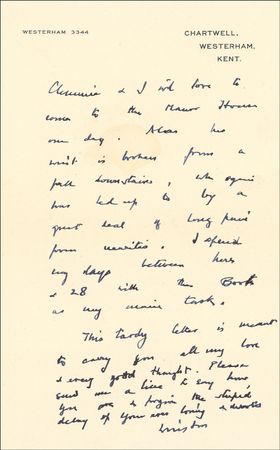 WESTERHAM 3344
CHARTWELL,
WESTERHAM,
KENT.
Clemmie & I wd love to
come to the Manor House
one day. Alas her
wrist is broken from a
fall downstairs, wh again
was led up to by a
great deal of long pain
from neuritis. I spend
my days between here
& 28 with the Book
as my main task.
This tardy letter is meant
to carry you all my love
& every good thought. Please
send me a line to say how
you are & forgive the stupid
delay of your ever loving & devoted
Winston